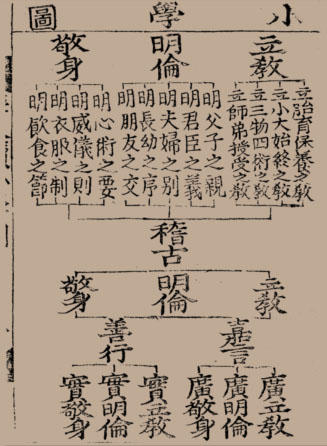 小學圖
立敎 明倫 敬身
立胎育保養之敎
立小大始終之敎
立三物四術之敎
立師弟授受之敎
明父子之親
明君臣之義
明夫婦之別
明長幼之序
明朋友之交
明心術之要
明威儀之則
明衣服之制
明飮食之節
稽古
立敎 明倫 敬身
嘉言 善行
廣立敎 廣明倫 廣敬身 實立敎 實明倫 實敬身